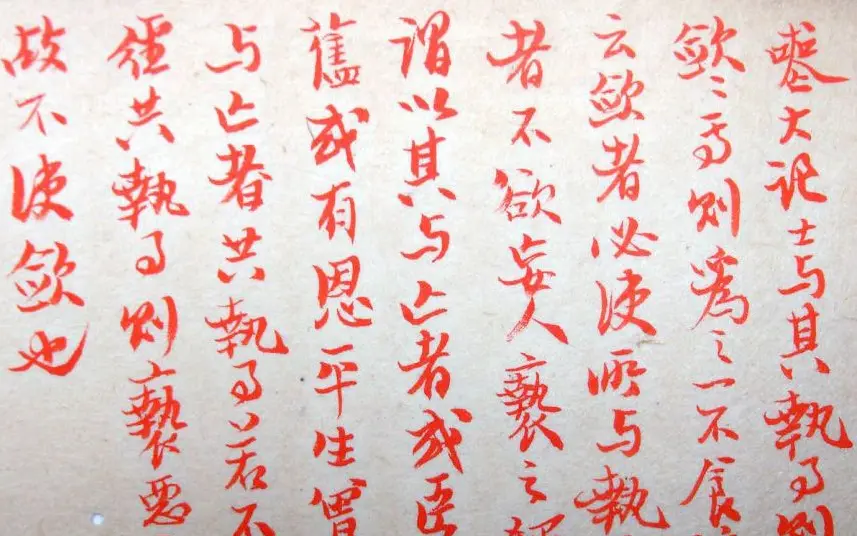 喪大記士与其執事則
歛〻焉則為之一不食
云歛者必使所与執
者不欲妄人褻之
謂以其与亡者或臣
舊或有恩平生曾
与亡者共執事若不
經共執事則褻惡
故不使歛也